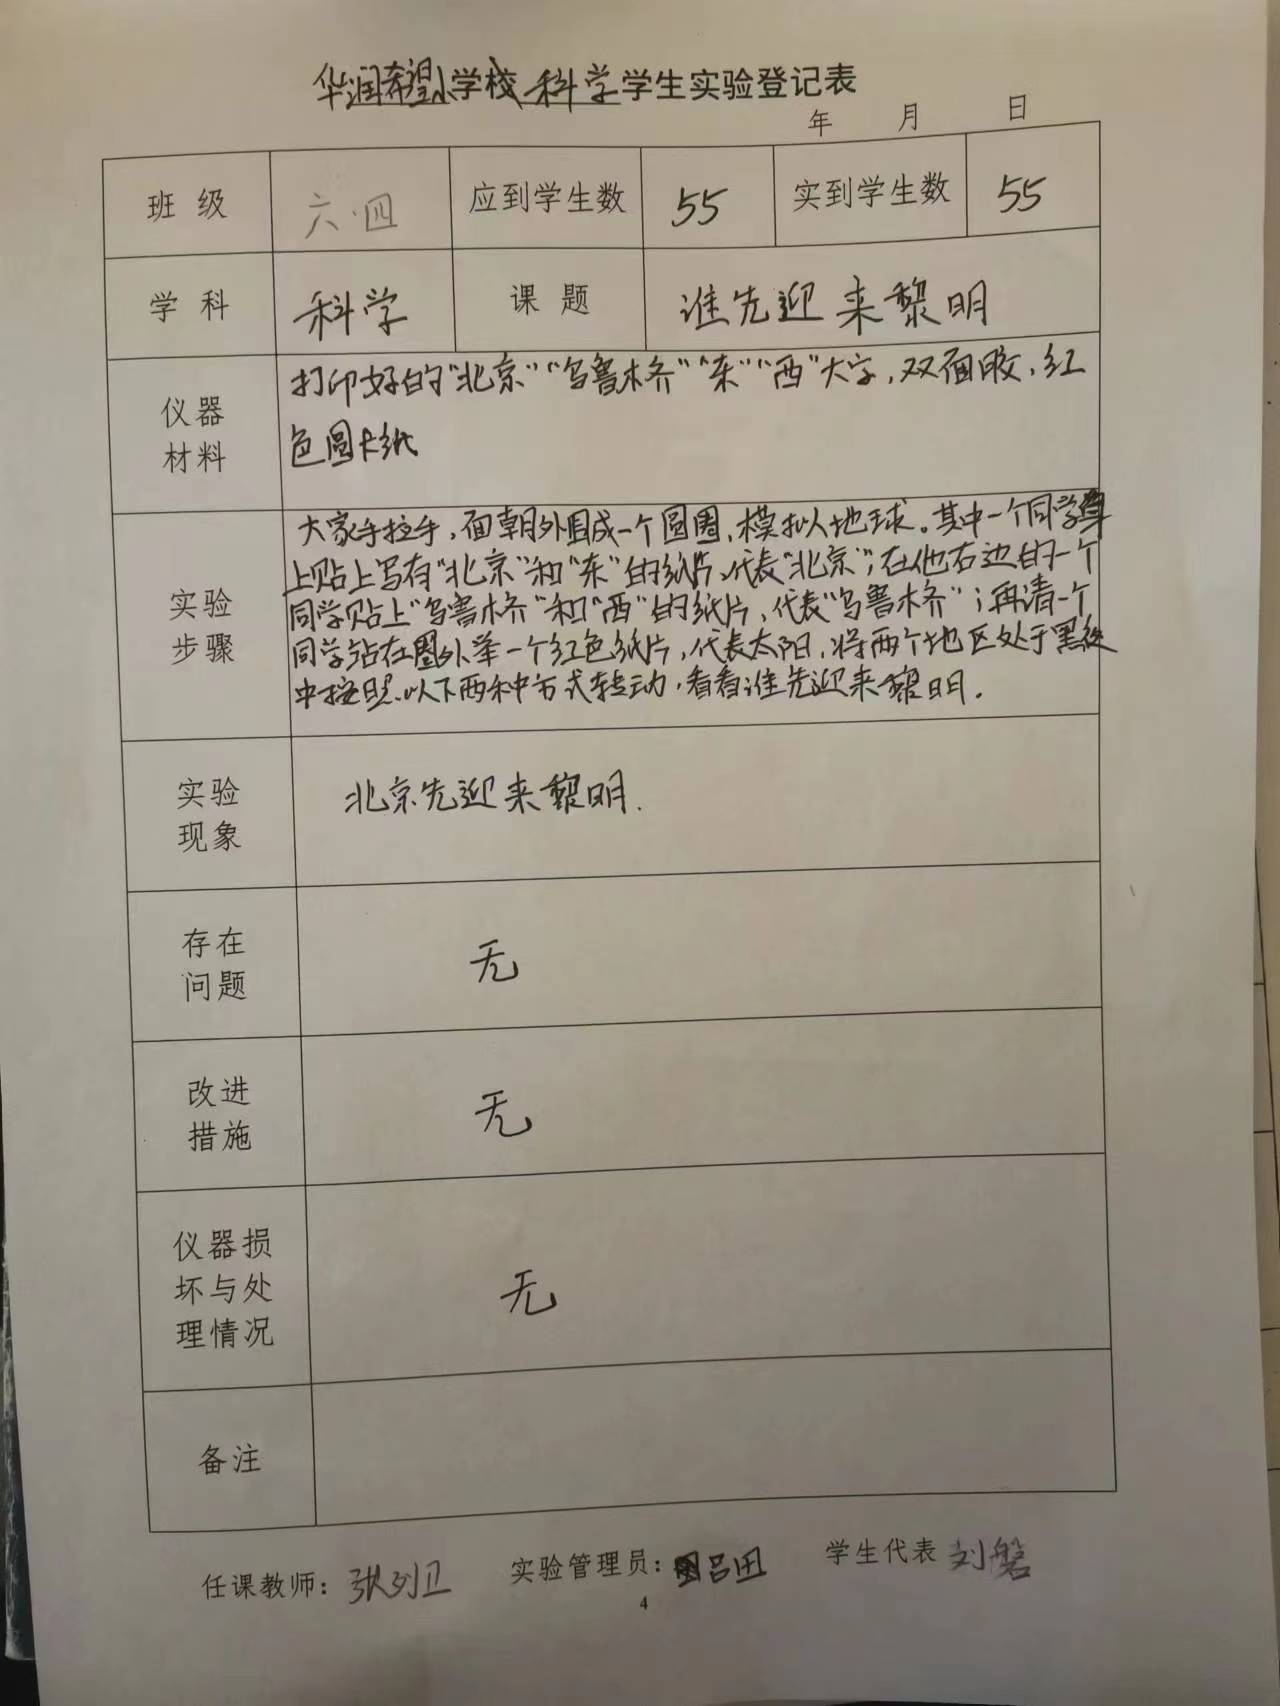 华润希望小学校科学学生实验登记表
年 月 日
班 级 六·四 应到学生数 55 实到学生数 55
学 科 科学 课 题 谁先迎来黎明
仪器
材料
打印好的"北京""乌鲁木齐""东""西"大字,双面胶,红
色圆卡纸
实验
步骤
大家手拉手,面朝外围成一个圆圈,模拟地球。其中一个同学身
上贴上写有"北京"和"东"的纸片,代表"北京";在他右边的一个
同学贴上"乌鲁木齐"和"西"的纸片,代表"乌鲁木齐";再请一个
同学站在圈外举一个红色纸片,代表太阳,将两个地区处于黑夜
中按照以下两种方式转动,看看谁先迎来黎明.
实验
现象
北京先迎来黎明.
存在
问题
无
改进
措施
无
仪器损
坏与处
理情况
无
备注
任课教师: 张列卫 实验管理员: 吕田 学生代表 刘磐
4